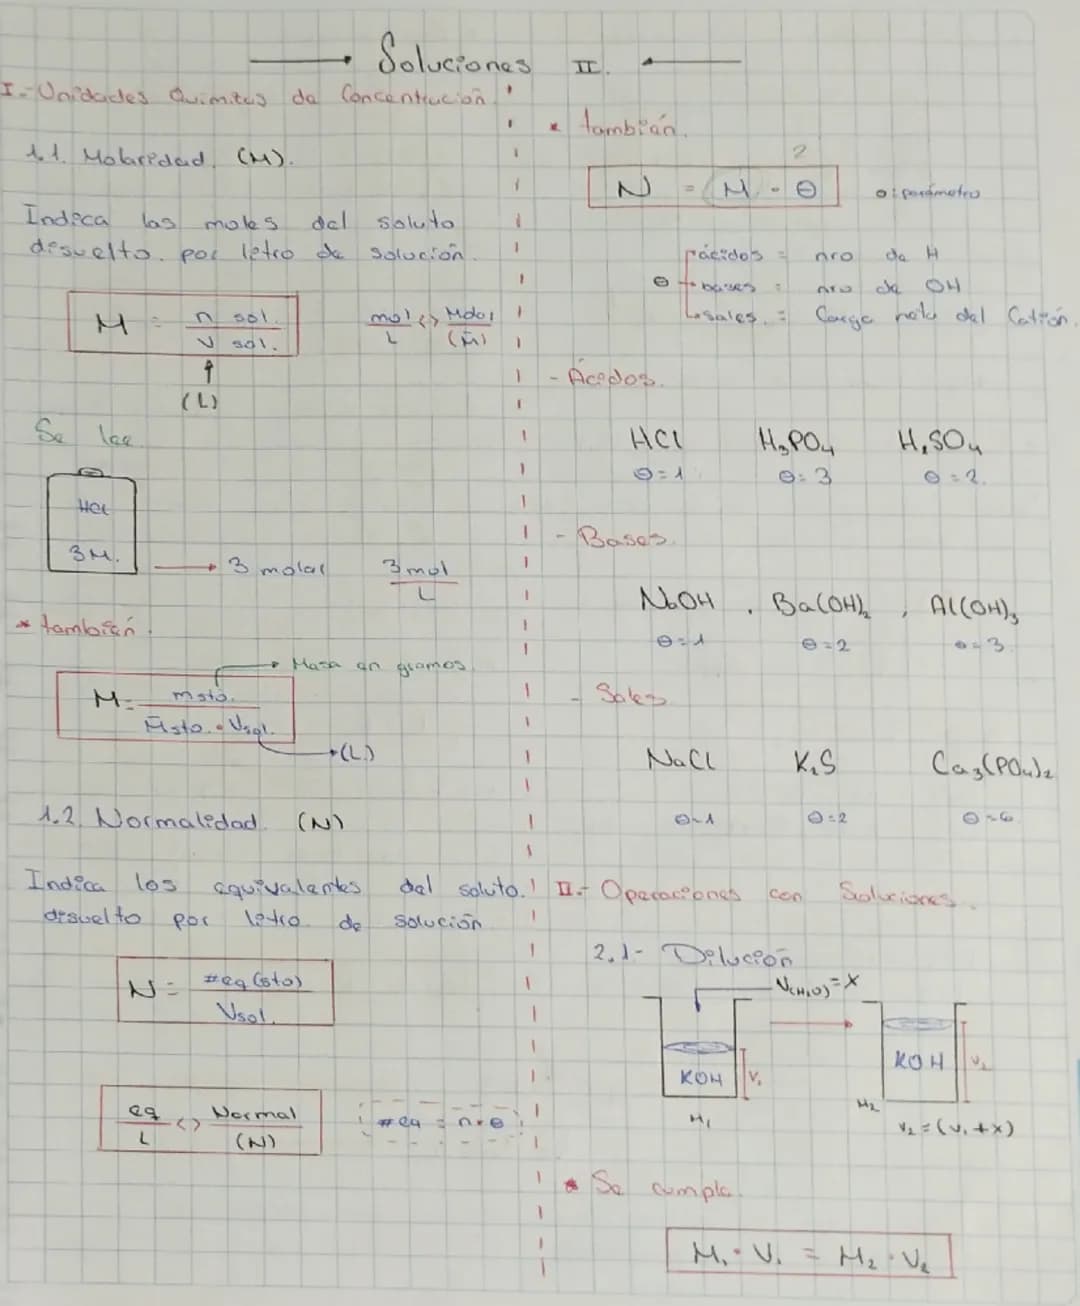 Soluciones II.
I.- Unidades Químicas de Concentración
1.1. Molaridad. (M).
Indica las moles del soluto
disuelto por litro de solución.
M = n sol. / V sol.
(L)
mol / L <> Molar / (M)
Se lee
HCl
3M. → 3 molar 3 mol / L
* también.
Masa en gramos.
M = msto. / M̄sto. . Vsol.
(L)
1.2. Normalidad. (N)
Indica los equivalentes del soluto.
disuelto por litro de solución
N = #eq(sto) / Vsol.
eq / L <> Normal / (N)
#eq = n . θ
* también.
2
N = M . θ
θ: parámetro
θ
ácidos = nro de H
bases = nro de OH
sales. = Carga neta del Catión.
- Ácidos.
HCl H₃PO₄ H₂SO₄
θ=1 θ=3 θ=2.
- Bases.
NaOH , Ba(OH)₂ , Al(OH)₃
θ=1 θ=2 θ=3
- Sales
NaCl K₂S Ca₃(PO₄)₂
θ=1 θ=2 θ=6
II.- Operaciones con Soluciones.
2.1- Dilución
V(H₂O)=X
KOH V₁
M₁
KOH V₂
M₂
V₂ = (V₁ + x)
* Se cumple.
M₁ . V₁ = M₂ . V₂